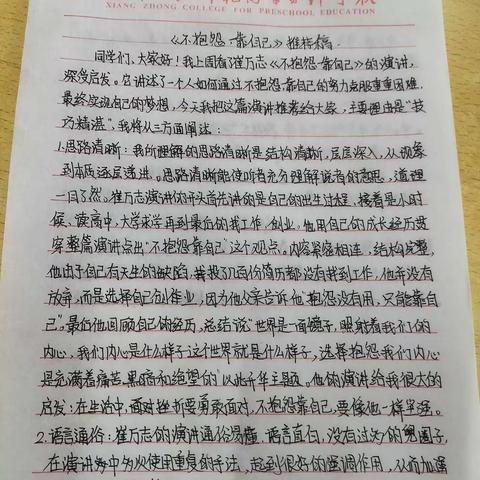 XIANG ZHONG COLLEGE FOR PRESCHOOL EDUCATION
《不抱怨、靠自己》推荐稿
同学们、大家好！我上周看了崔万志《不抱怨、靠自己》的演讲,
深受启发。它讲述了一个人如何通过不抱怨靠自己的努力克服重重困难,
最终实现自己的梦想，今天我把这篇演讲推荐给大家，主要理由是“技
巧精湛”，我将从三方面阐述：
1.思路清晰：我所理解的思路清晰是结构清晰，层层深入，从现象
到本质逐层递进。思路清晰能使听者充分理解说者的意思，道理
一目了然。崔万志演讲的开头首先讲的是自己的出生过程，接着是小时
候、读高中，大学求学再到最后的找工作、创业，他用自己的成长经历贯
穿整篇演讲点出“不抱怨靠自己”这个观点。内容紧密相连，结构完整,
他由于自己有天生的缺陷，投了几百份简历都没有找到工作，他并没有
放弃，而是选择自己创作业，因为他父亲告诉他“抱怨没有用，只能靠自
己”。最后他回顾自己的经历，总结说“世界是一面镜子，照射着我们的
内心，我们内心是什么样子这个世界就是什么样子，选择抱怨我们内心
是充满着痛苦、黑暗和绝望的”以此升华主题。他的演讲给我很大的
启发：在生活中，面对挫折要勇敢面对，不抱怨靠自己，要像他一样坚强。
2.语言通俗：崔万志的演讲通俗易懂、语言直白，没有过为的兜圈子,
在演讲中多次使用重复的手法，起到很好的强调作用，从而加强